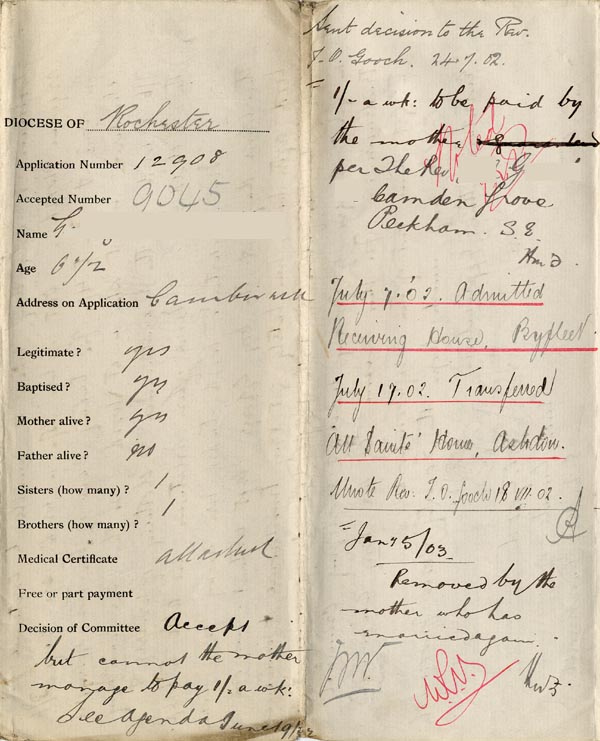 DIOCESE OF Rochester
Application Number 12908
Accepted Number 9045
Name G
Age 6 1/2
Address on Application Camberwell
Legitimate? yes
Baptised? yes
Mother alive? yes
Father alive? no
Sisters (how many)? 1
Brothers (how many)? 1
Medical Certificate attached
Free or part payment
Decision of Committee Accept
but cannot the mother
manage to pay 1/- a wk:
See Agenda June 19/02
Sent decision to the Rev.
T. O. Gooch. 24.7.02.
1/- a wk: to be paid by
the mother
per The Rev. G
Camden Grove
Peckham. S.E.
July 7. '02. Admitted
Receiving House, Byfleet.
July 17. 02. Transferred
All Saints' Home, Ashdon.
Wrote Rev. T. O. Gooch 18 VII. 02.
Jany 5/03
Removed by the
mother who has
married again.